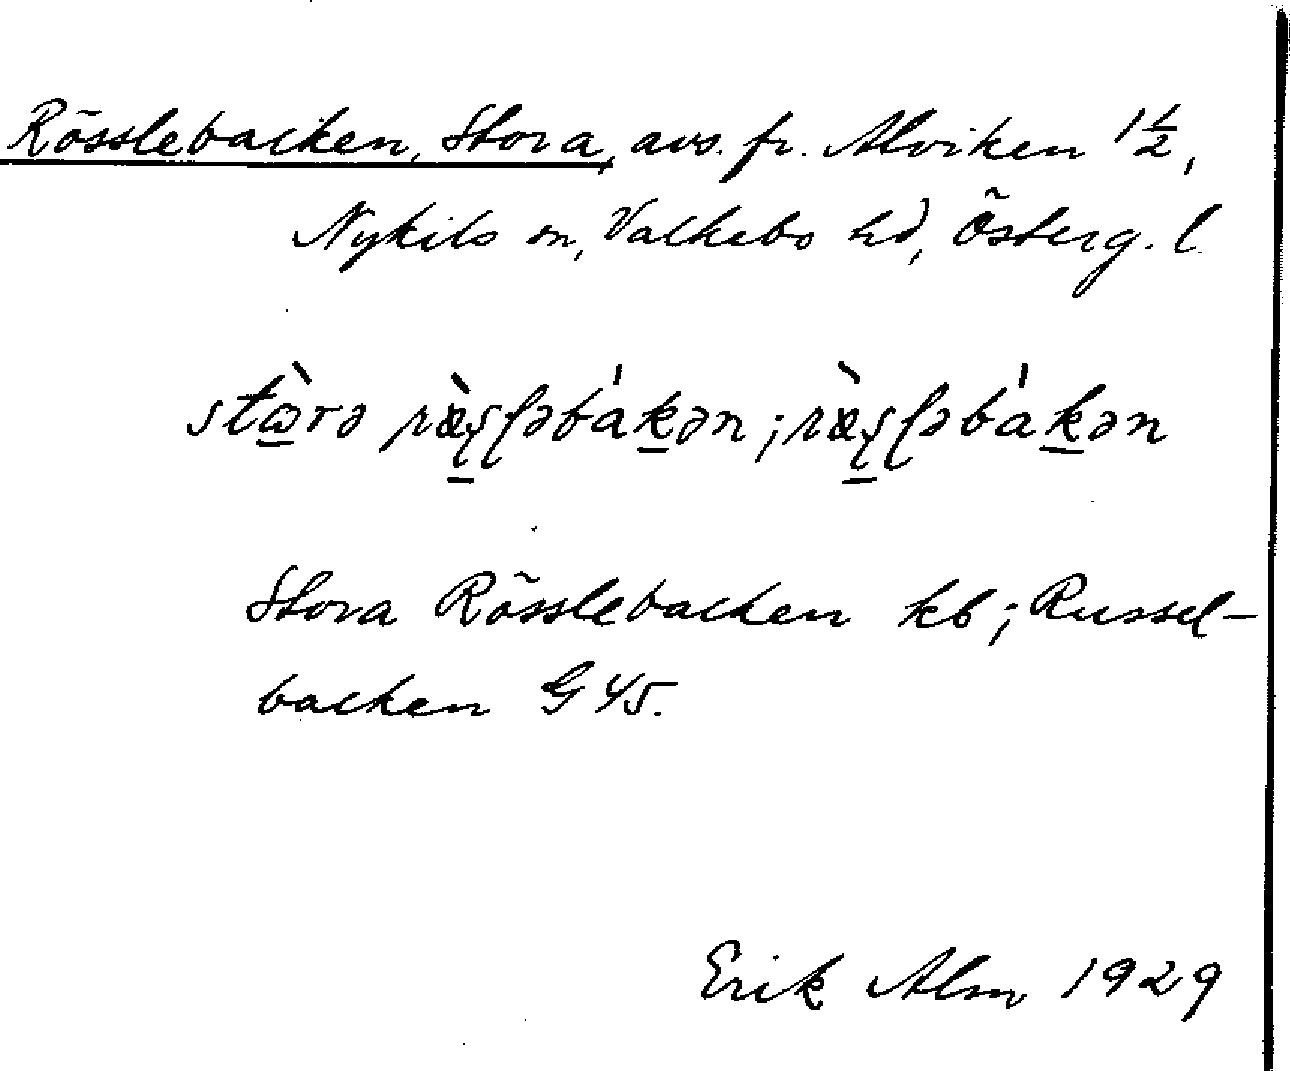 Rösslebacken, Stora, avs. fr. Alviken 1½,
Nykils sn, Valkebo hd, Österg. l.
stɷ̠̀rə ræ̀ʂ̠ɭəbák̠ən; ræ̀ʂ̠ɭəbák̠ən
Stora Rösslebacken kb; Russel-
backen G 45.
Erik Alm 1929